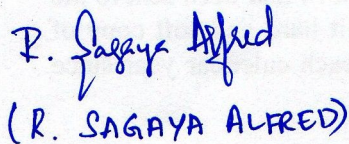 R. Sagaya Alfred
(R. SAGAYA ALFRED)